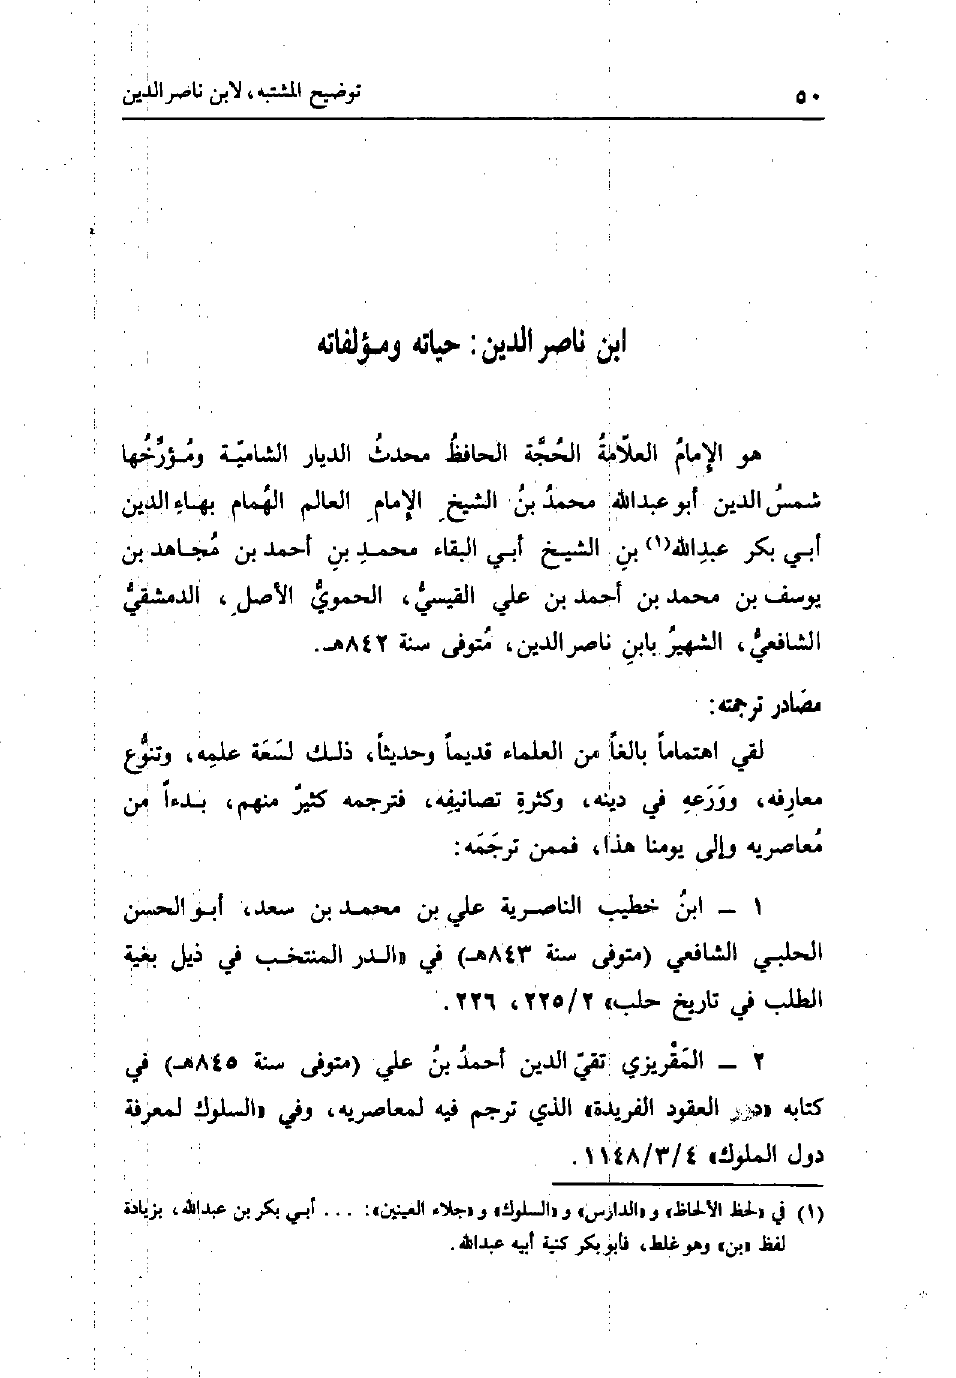 ٥٠
توضيح المشتبه، لابن ناصر الدين
ابن ناصر الدين: حياته ومؤلفاته
هو الإِمامُ العلّامةُ الحُجَّة الحافظُ محدثُ الديار الشاميّة ومُؤرِّخُها
شمسُ الدين أبو عبدالله محمدُ بنُ الشيخِ الإِمامِ العالم الهُمام بهاءِ الدين
أبي بكر عبدِالله(١) بنِ الشيخ أبي البقاء محمدِ بنِ أحمد بن مُجاهد بن
يوسف بن محمد بن أحمد بن علي القيسيُّ، الحمويُّ الأصلِ، الدمشقيُّ
الشافعيُّ، الشهيرُ بابنِ ناصر الدين، مُتوفى سنة ٨٤٢هـ.
مصَادر ترجمته:
لقي اهتماماً بالغاً من العلماء قديماً وحديثاً، ذلك لسَعَة علمِه، وتنوُّع
معارِفه، ووَرَعهِ في دينه، وكثرةِ تصانيفِه، فترجمه كثيرٌ منهم، بدءاً من
مُعاصريه وإلى يومنا هذا، فممن ترجَمَه:
١ – ابنُ خطيب الناصرية علي بن محمد بن سعد، أبو الحسن
الحلبي الشافعي (متوفى سنة ٨٤٣هـ) في «الدر المنتخب في ذيل بغية
الطلب في تاريخ حلب» ٢/٢٢٥، ٢٢٦.
٢ – المَقْريزي تقيّ الدين أحمدُ بنُ علي (متوفى سنة ٨٤٥هـ) في
كتابه «درر العقود الفريدة» الذي ترجم فيه لمعاصريه، وفي «السلوك لمعرفة
دول الملوك» ٤/٣/١١٤٨.
(١) في «لحظ الألحاظ» و«الدارس» و«السلوك» و«جلاء العينين»: ... أبي بكر بن عبدالله، بزيادة
لفظ «بن» وهو غلط، فأبو بكر كنية أبيه عبدالله.